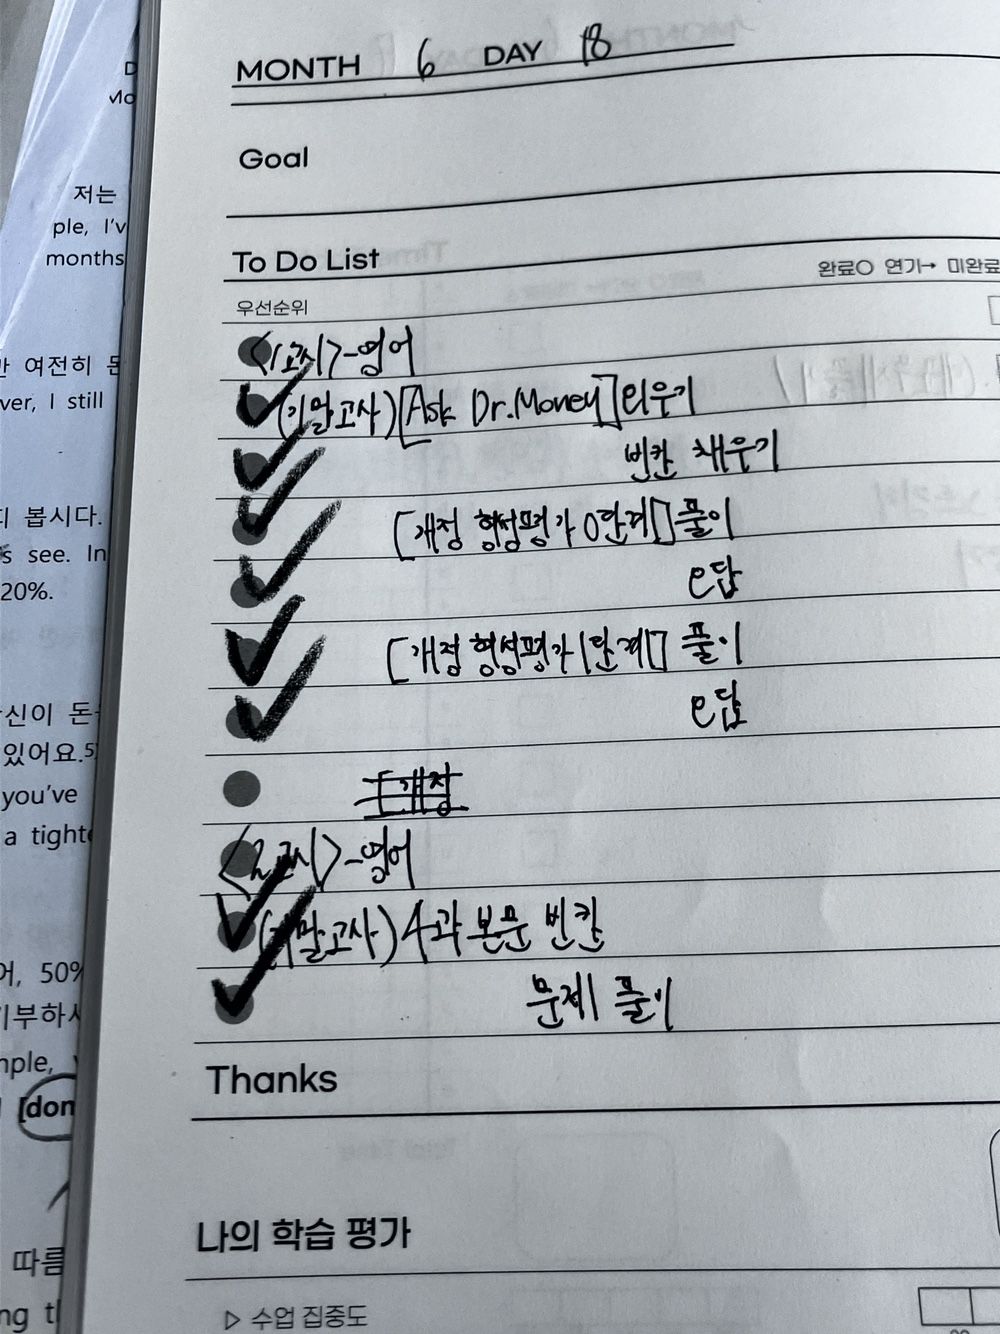 MONTH 6 DAY 18
Goal
To Do List
완료○ 연기→ 미완료
우선순위
<1교시>-영어
(기말고사)[Ask Dr.Money]외우기
빈칸 채우기
[개정 형성평가 0단계] 풀이
e답
[개정 형성평가 1단계] 풀이
e답
<2교시>-영어
(기말고사)4과 본문 빈칸
문제 풀이
Thanks
나의 학습 평가
▷ 수업 집중도
저는
ple, I'v
months
여전히 돈
ver, I still
봅시다.
s see. In
20%.
신이 돈
있어요.5)
you've
a tighte
어, 50%
기부하시
nple,
[don
따름
ng tl